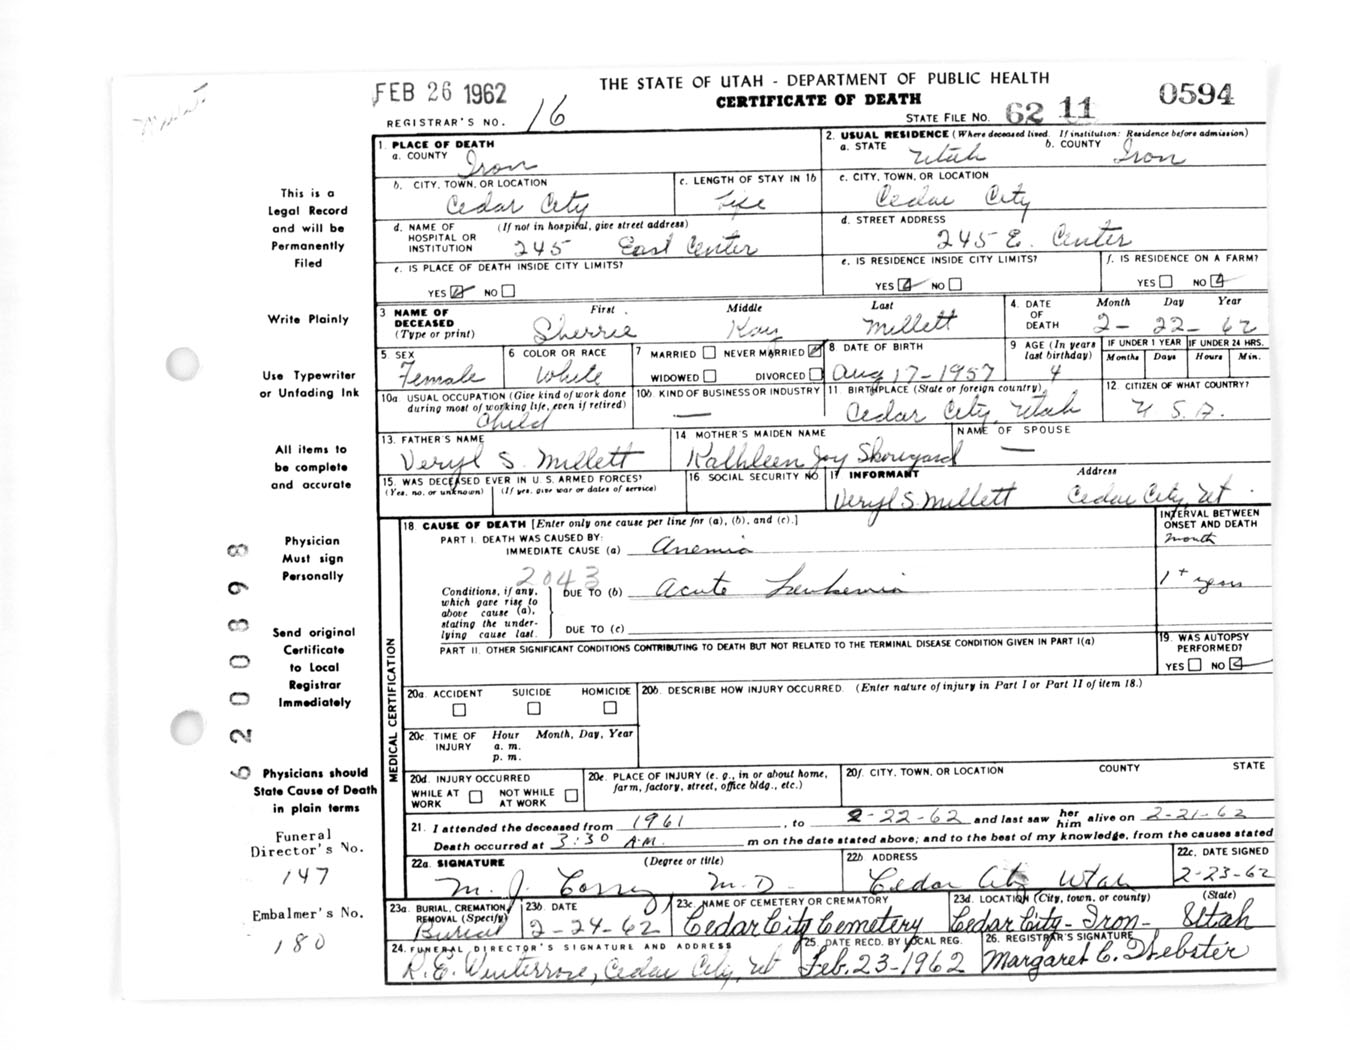 FEB 26 1962
THE STATE OF UTAH - DEPARTMENT OF PUBLIC HEALTH
CERTIFICATE OF DEATH
0594
REGISTRAR'S NO. 16
STATE FILE NO. 62 11
1. PLACE OF DEATH
a. COUNTY Iron
2. USUAL RESIDENCE (Where deceased lived. If institution: Residence before admission)
a. STATE Utah b. COUNTY Iron
b. CITY, TOWN, OR LOCATION Cedar City
c. LENGTH OF STAY IN 1b Life
c. CITY, TOWN, OR LOCATION Cedar City
d. NAME OF HOSPITAL OR INSTITUTION (If not in hospital, give street address) 245 East Center
d. STREET ADDRESS 245 E. Center
e. IS PLACE OF DEATH INSIDE CITY LIMITS?
YES NO
e. IS RESIDENCE INSIDE CITY LIMITS?
YES NO
f. IS RESIDENCE ON A FARM?
YES NO
3 NAME OF DECEASED (Type or print)
First Middle Last
Sherrie Kay Millett
4. DATE OF DEATH Month Day Year
2- 22- 62
5. SEX Female
6 COLOR OR RACE White
7 MARRIED NEVER MARRIED
WIDOWED DIVORCED
8. DATE OF BIRTH Aug 17-1957
9 AGE (In years last birthday) 4
IF UNDER 1 YEAR Months Days
IF UNDER 24 HRS. Hours Min.
10a USUAL OCCUPATION (Give kind of work done during most of working life, even if retired) Child
10b. KIND OF BUSINESS OR INDUSTRY —
11 BIRTHPLACE (State or foreign country) Cedar City, Utah
12 CITIZEN OF WHAT COUNTRY? U.S.A.
13. FATHER'S NAME Veryl S. Millett
14 MOTHER'S MAIDEN NAME Kathleen Joy
NAME OF SPOUSE —
15. WAS DECEASED EVER IN U.S. ARMED FORCES?
(Yes, no, or unknown) (If yes, give war or dates of service)
16. SOCIAL SECURITY NO.
17 INFORMANT Address
Veryl S. Millett Cedar City, Ut.
18. CAUSE OF DEATH [Enter only one cause per line for (a), (b), and (c).]
INTERVAL BETWEEN ONSET AND DEATH
PART I. DEATH WAS CAUSED BY:
IMMEDIATE CAUSE (a) Anemia month
2043
Conditions, if any, which gave rise to above cause (a), stating the underlying cause last.
DUE TO (b) Acute Leukemia 1+ year
DUE TO (c)
PART II. OTHER SIGNIFICANT CONDITIONS CONTRIBUTING TO DEATH BUT NOT RELATED TO THE TERMINAL DISEASE CONDITION GIVEN IN PART I(a)
19. WAS AUTOPSY PERFORMED?
YES NO
MEDICAL CERTIFICATION
20a. ACCIDENT SUICIDE HOMICIDE
20b. DESCRIBE HOW INJURY OCCURRED. (Enter nature of injury in Part I or Part II of item 18.)
20c. TIME OF INJURY Hour Month, Day, Year
a. m.
p. m.
20d. INJURY OCCURRED
WHILE AT WORK NOT WHILE AT WORK
20e. PLACE OF INJURY (e. g., in or about home, farm, factory, street, office bldg., etc.)
20f. CITY, TOWN, OR LOCATION COUNTY STATE
21. I attended the deceased from 1961, to 2-22-62 and last saw her him alive on 2-21-62
Death occurred at 3:30 A.M. m on the date stated above; and to the best of my knowledge, from the causes stated
22a. SIGNATURE (Degree or title)
M. J. M.D.
22b ADDRESS Cedar City Utah
22c. DATE SIGNED 2-23-62
23a. BURIAL, CREMATION, REMOVAL (Specify) Burial
23b DATE 2-24-62
23c NAME OF CEMETERY OR CREMATORY Cedar City Cemetery
23d. LOCATION (City, town, or county) (State)
Cedar City - Iron - Utah
24. FUNERAL DIRECTOR'S SIGNATURE AND ADDRESS
R.E. Winterrose, Cedar City, Ut
25. DATE RECD. BY LOCAL REG. Feb. 23-1962
26. REGISTRAR'S SIGNATURE Margaret C. Webster
This is a
Legal Record
and will be
Permanently
Filed
Write Plainly
Use Typewriter
or Unfading Ink
All items to
be complete
and accurate
Physician
Must sign
Personally
Send original
Certificate
to Local
Registrar
Immediately
Physicians should
State Cause of Death
in plain terms
Funeral
Director's No.
147
Embalmer's No.
180
6200398